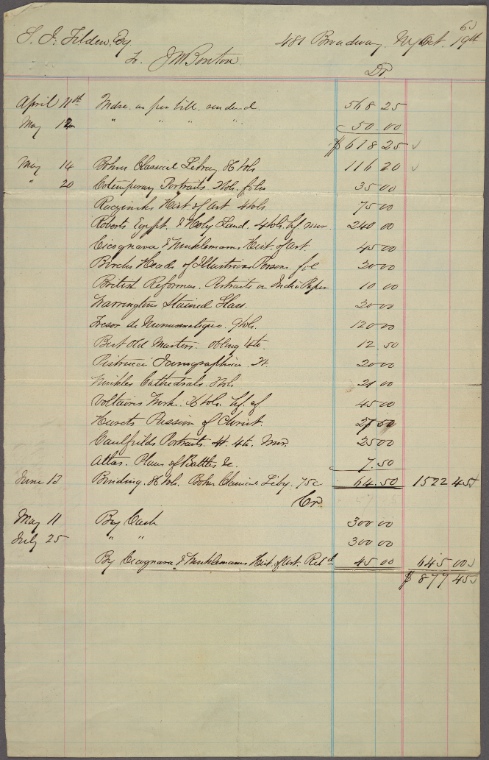 S. J. Tilden Esq 481 Broadway NY Oct. 19th 65
To J W Bouton
Dr
April 11th Mdse. as per bill rendered 568 25
May 12 " " " " 50.00
$618 25
May 14 Bohns Classical Library Vols 116 20
" 20 Cotemporary Portraits. Vols. folio 35 00
Raczinski Hist of Art 4 vols 75 00
Roberts Egypt & Holy Land. 4 vols. hf mor 240 00
Cicognara & Winckelmann Hist. of Art. 45 00
Birchs Heads of Illustrious Persons fol 20 00
British Reformers. Portraits on India Paper 10 00
Warringtons Stained Glass 20 00
Tresor de Numismatique. Vols. 120 00
Best Old Masters. oblong 4to 12 50
Iconographica 20 00
Winkles Cathedrals. Vols. 21 00
Voltaires Works. Vols. hf cf 45 00
Passion of Christ. 27 50
Caulfields Portraits 4to. Mor. 25 00
Atlas. Plans of Battles &c. 7.50
June 12 Binding. Vols. Bohns Classical Liby. 75c 64.50 1522 45
Cr.
May 11 By Cash 300 00
July 25 " " 300 00
By Cicognara & Winckelmanns Hist of Art. Retd 45.00 645 00
$877 45